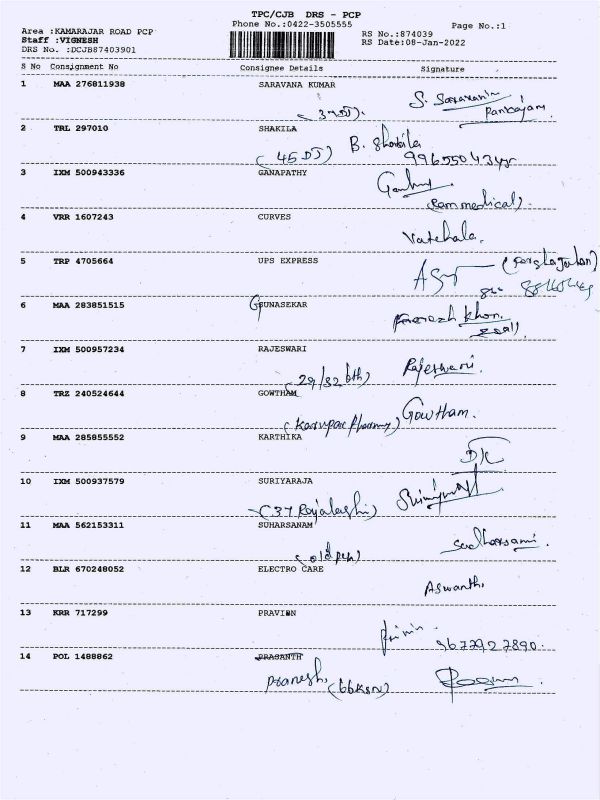 TPC/CJB DRS - PCP
Phone No.:0422-3505555
Page No.:1
Area :KAMARAJAR ROAD PCP
Staff :VIGNESH
DRS No. :DCJB87403901
RS No.:874039
RS Date:08-Jan-2022
S No Consignment No Consignee Details Signature
1 MAA 276811938 SARAVANA KUMAR
S. Saravanan
Pankajam
2 TRL 297010 SHAKILA
(45 DJ) B. Shakila
3 IXM 500943336 GANAPATHY
(Ram medical)
4 VRR 1607243 CURVES
Vatchala.
5 TRP 4705664 UPS EXPRESS
6 MAA 283851515 GUNASEKAR
khan.
7 IXM 500957234 RAJESWARI
Rajeswari.
(29/32 bth)
8 TRZ 240524644 GOWTHAM
Gowtham.
9 MAA 285855552 KARTHIKA
10 IXM 500937579 SURIYARAJA
11 MAA 562153311 SUHARSANAM
(old pcp)
12 BLR 670248052 ELECTRO CARE
Aswanth.
13 KRR 717299 PRAVIEN
9677927890.
14 POL 1488862 PRASANTH
Pranesh, (66KSN)